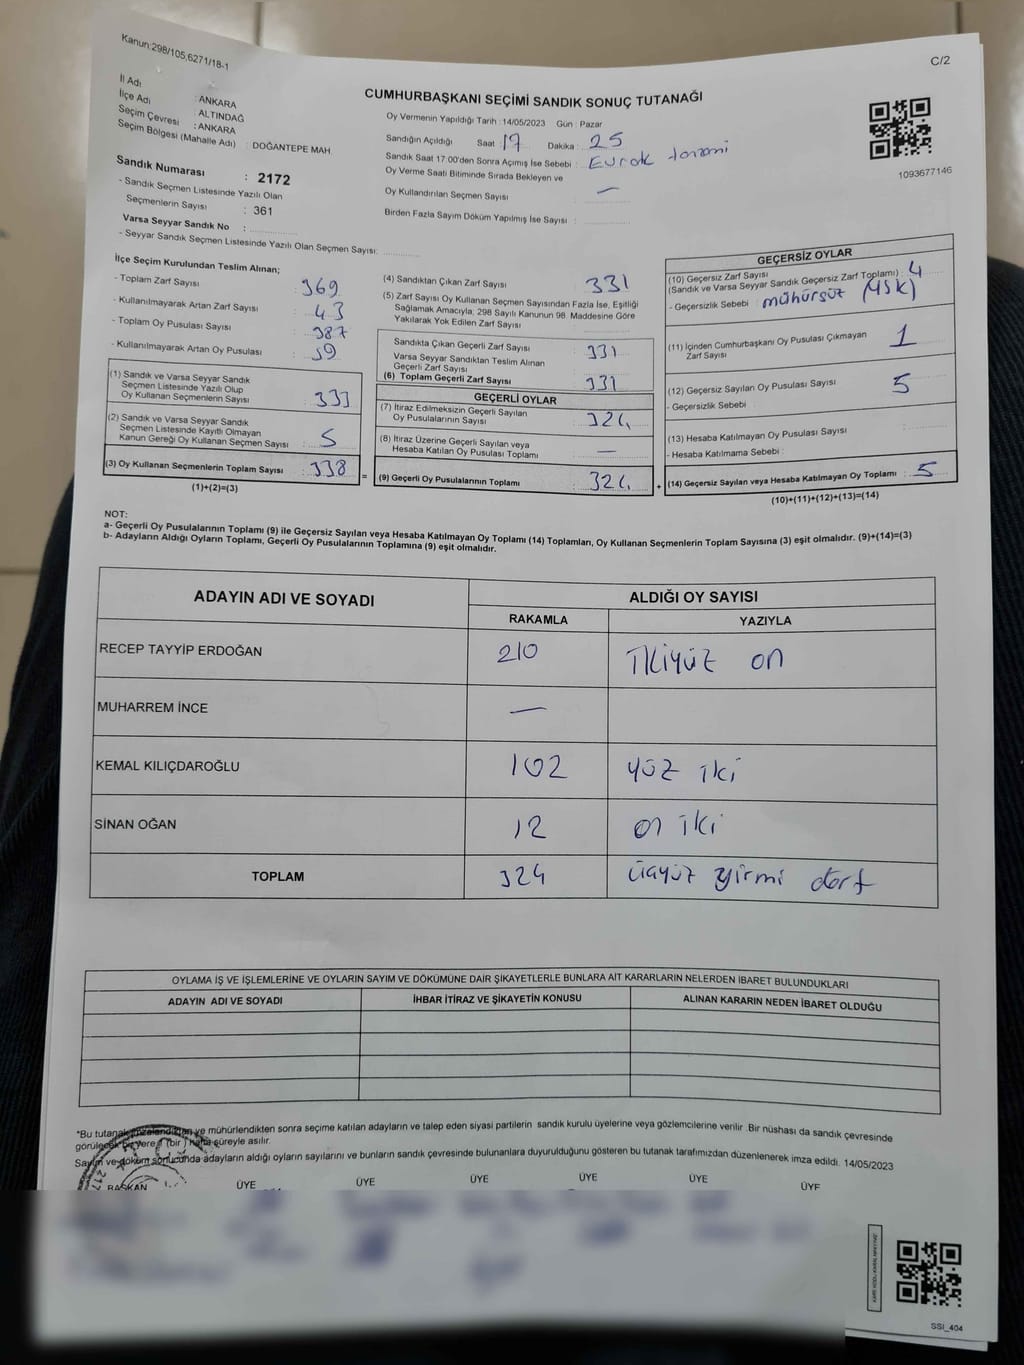 Kanun:298/105,6271/18-1
C/2
İl Adı : ANKARA
İlçe Adı : ALTINDAĞ
Seçim Çevresi : ANKARA
Seçim Bölgesi (Mahalle Adı) : DOĞANTEPE MAH.
Sandık Numarası : 2172
- Sandık Seçmen Listesinde Yazılı Olan
Seçmenlerin Sayısı : 361
Varsa Seyyar Sandık No :
- Seyyar Sandık Seçmen Listesinde Yazılı Olan Seçmen Sayısı:
CUMHURBAŞKANI SEÇİMİ SANDIK SONUÇ TUTANAĞI
Oy Vermenin Yapıldığı Tarih :14/05/2023 Gün : Pazar
Sandığın Açıldığı Saat : 17 Dakika : 25
Sandık Saat 17:00'den Sonra Açımış İse Sebebi : Evrak tanzimi
Oy Verme Saati Bitiminde Sırada Bekleyen ve
Oy Kullandırılan Seçmen Sayısı : —
Birden Fazla Sayım Döküm Yapılmış İse Sayısı :
1093677146
İlçe Seçim Kurulundan Teslim Alınan;
- Toplam Zarf Sayısı : 369
- Kullanılmayarak Artan Zarf Sayısı : 43
- Toplam Oy Pusulası Sayısı : 387
- Kullanılmayarak Artan Oy Pusulası : 59
(1) Sandık ve Varsa Seyyar Sandık
Seçmen Listesinde Yazılı Olup
Oy Kullanan Seçmenlerin Sayısı : 333
(2) Sandık ve Varsa Seyyar Sandık
Seçmen Listesinde Kayıtlı Olmayan
Kanun Gereği Oy Kullanan Seçmen Sayısı : 5
(3) Oy Kullanan Seçmenlerin Toplam Sayısı : 338
(1)+(2)=(3)
=
(4) Sandıktan Çıkan Zarf Sayısı : 331
(5) Zarf Sayısı Oy Kullanan Seçmen Sayısından Fazla İse, Eşitliği
Sağlamak Amacıyla; 298 Sayılı Kanunun 98. Maddesine Göre
Yakılarak Yok Edilen Zarf Sayısı :
Sandıkta Çıkan Geçerli Zarf Sayısı : 331
Varsa Seyyar Sandıktan Teslim Alınan
Geçerli Zarf Sayısı :
(6) Toplam Geçerli Zarf Sayısı : 331
GEÇERLİ OYLAR
(7) İtiraz Edilmeksizin Geçerli Sayılan
Oy Pusulalarının Sayısı : 324
(8) İtiraz Üzerine Geçerli Sayılan veya
Hesaba Katılan Oy Pusulası Toplamı : —
(9) Geçerli Oy Pusulalarının Toplamı : 324
+
GEÇERSİZ OYLAR
(10) Geçersiz Zarf Sayısı
(Sandık ve Varsa Seyyar Sandık Geçersiz Zarf Toplamı) : 4
- Geçersizlik Sebebi : mühürsüz (YSK)
(11) İçinden Cumhurbaşkanı Oy Pusulası Çıkmayan
Zarf Sayısı : 1
(12) Geçersiz Sayılan Oy Pusulası Sayısı : 5
- Geçersizlik Sebebi :
(13) Hesaba Katılmayan Oy Pusulası Sayısı :
- Hesaba Katılmama Sebebi :
(14) Geçersiz Sayılan veya Hesaba Katılmayan Oy Toplamı : 5
(10)+(11)+(12)+(13)=(14)
NOT:
a- Geçerli Oy Pusulalarının Toplamı (9) ile Geçersiz Sayılan veya Hesaba Katılmayan Oy Toplamı (14) Toplamları, Oy Kullanan Seçmenlerin Toplam Sayısına (3) eşit olmalıdır. (9)+(14)=(3)
b- Adayların Aldığı Oyların Toplamı, Geçerli Oy Pusulalarının Toplamına (9) eşit olmalıdır.
ADAYIN ADI VE SOYADI
ALDIĞI OY SAYISI
RAKAMLA YAZIYLA
RECEP TAYYİP ERDOĞAN 210 İkiyüz on
MUHARREM İNCE —
KEMAL KILIÇDAROĞLU 102 yüz iki
SİNAN OĞAN 12 on iki
TOPLAM 324 üçyüz yirmi dört
OYLAMA İŞ VE İŞLEMLERİNE VE OYLARIN SAYIM VE DÖKÜMÜNE DAİR ŞİKAYETLERLE BUNLARA AİT KARARLARIN NELERDEN İBARET BULUNDUKLARI
ADAYIN ADI VE SOYADI İHBAR İTİRAZ VE ŞİKAYETİN KONUSU ALINAN KARARIN NEDEN İBARET OLDUĞU
*Bu tutanak düzelendikten ve mühürlendikten sonra seçime katılan adayların ve talep eden siyasi partilerin sandık kurulu üyelerine veya gözlemcilerine verilir. Bir nüshası da sandık çevresinde
görülecek bir yere (bir) hafta süreyle asılır.
Sayım ve döküm sonucunda adayların aldığı oyların sayılarını ve bunların sandık çevresinde bulunanlara duyurulduğunu gösteren bu tutanak tarafımızdan düzenlenerek imza edildi. 14/05/2023
BAŞKAN ÜYE ÜYE ÜYE ÜYE ÜYE ÜYE
SSI_404